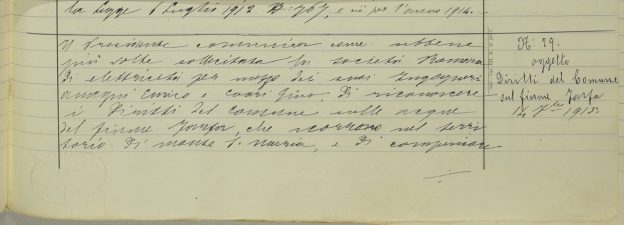 la Legge 6 Luglio 1912 N. 767, e ciò per l'anno 1914.
Il Presidente comunica come ebbene
più volte sollecitata la società Romana
di elettricità per mezzo dei suoi Ingegneri
Enrico e Gino di riconoscere
i Diritti del Comune sulle acque
del fiume Farfa, che scorrono nel terri
torio di Monte S. Maria, e di compensare
N. 29.
oggetto
Diritti del Comune
sul fiume Farfa
14 7bre 1913.